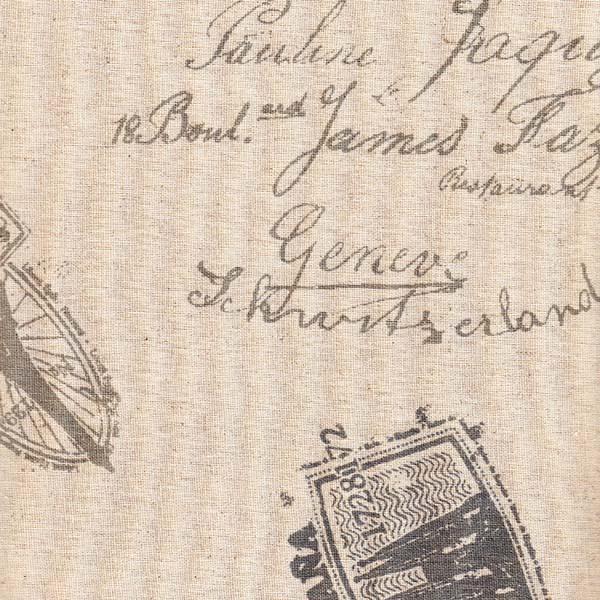 Pauline Fraqu
18 Boul. and James Faz
Restaurant
Geneve
Schwitzerland
1728
72
ARA